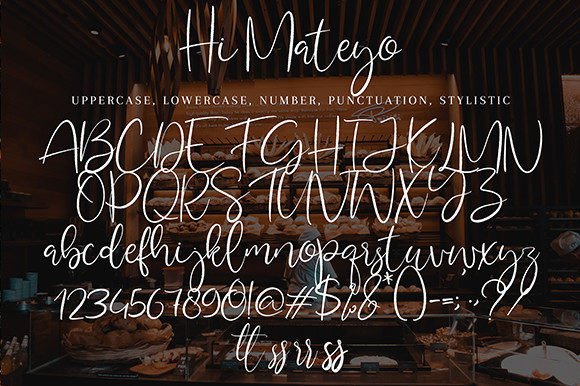 Hi Mateyo
UPPERCASE, LOWERCASE, NUMBER, PUNCTUATION, STYLISTIC
ABCDEFGHIJKLMN
OPQRSTUNWXYZ
abcdefhijklmnopqrstuvwxyz
1234567890!@#$%&*()-=;.,??
tt ss rr ss